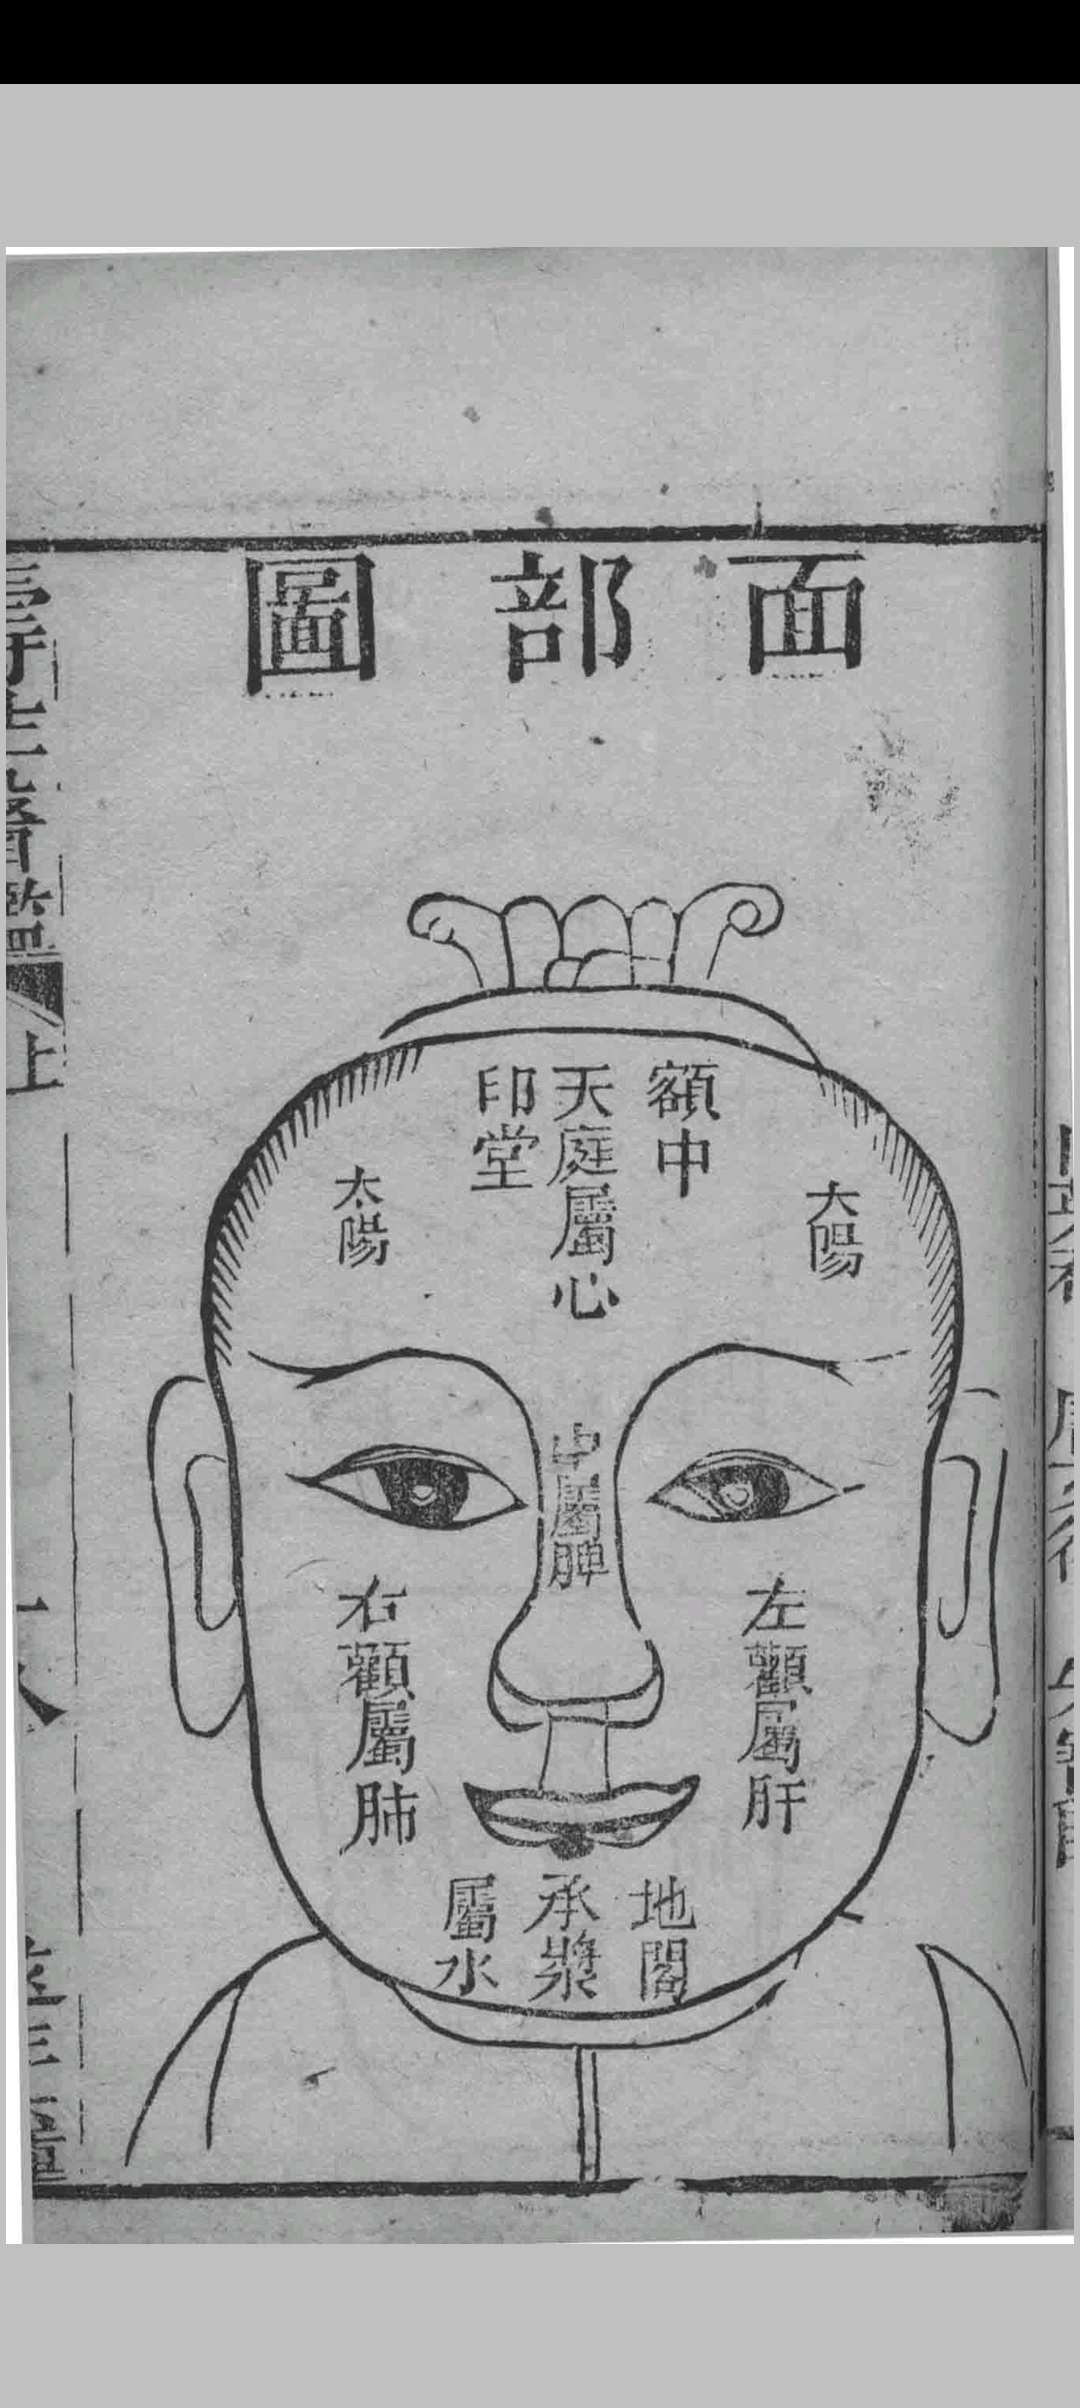 面部圖
額中
天庭屬心
印堂
太陽
太陽
中屬脾
左顴屬肝
右顴屬肺
地閣
承漿
屬水
上